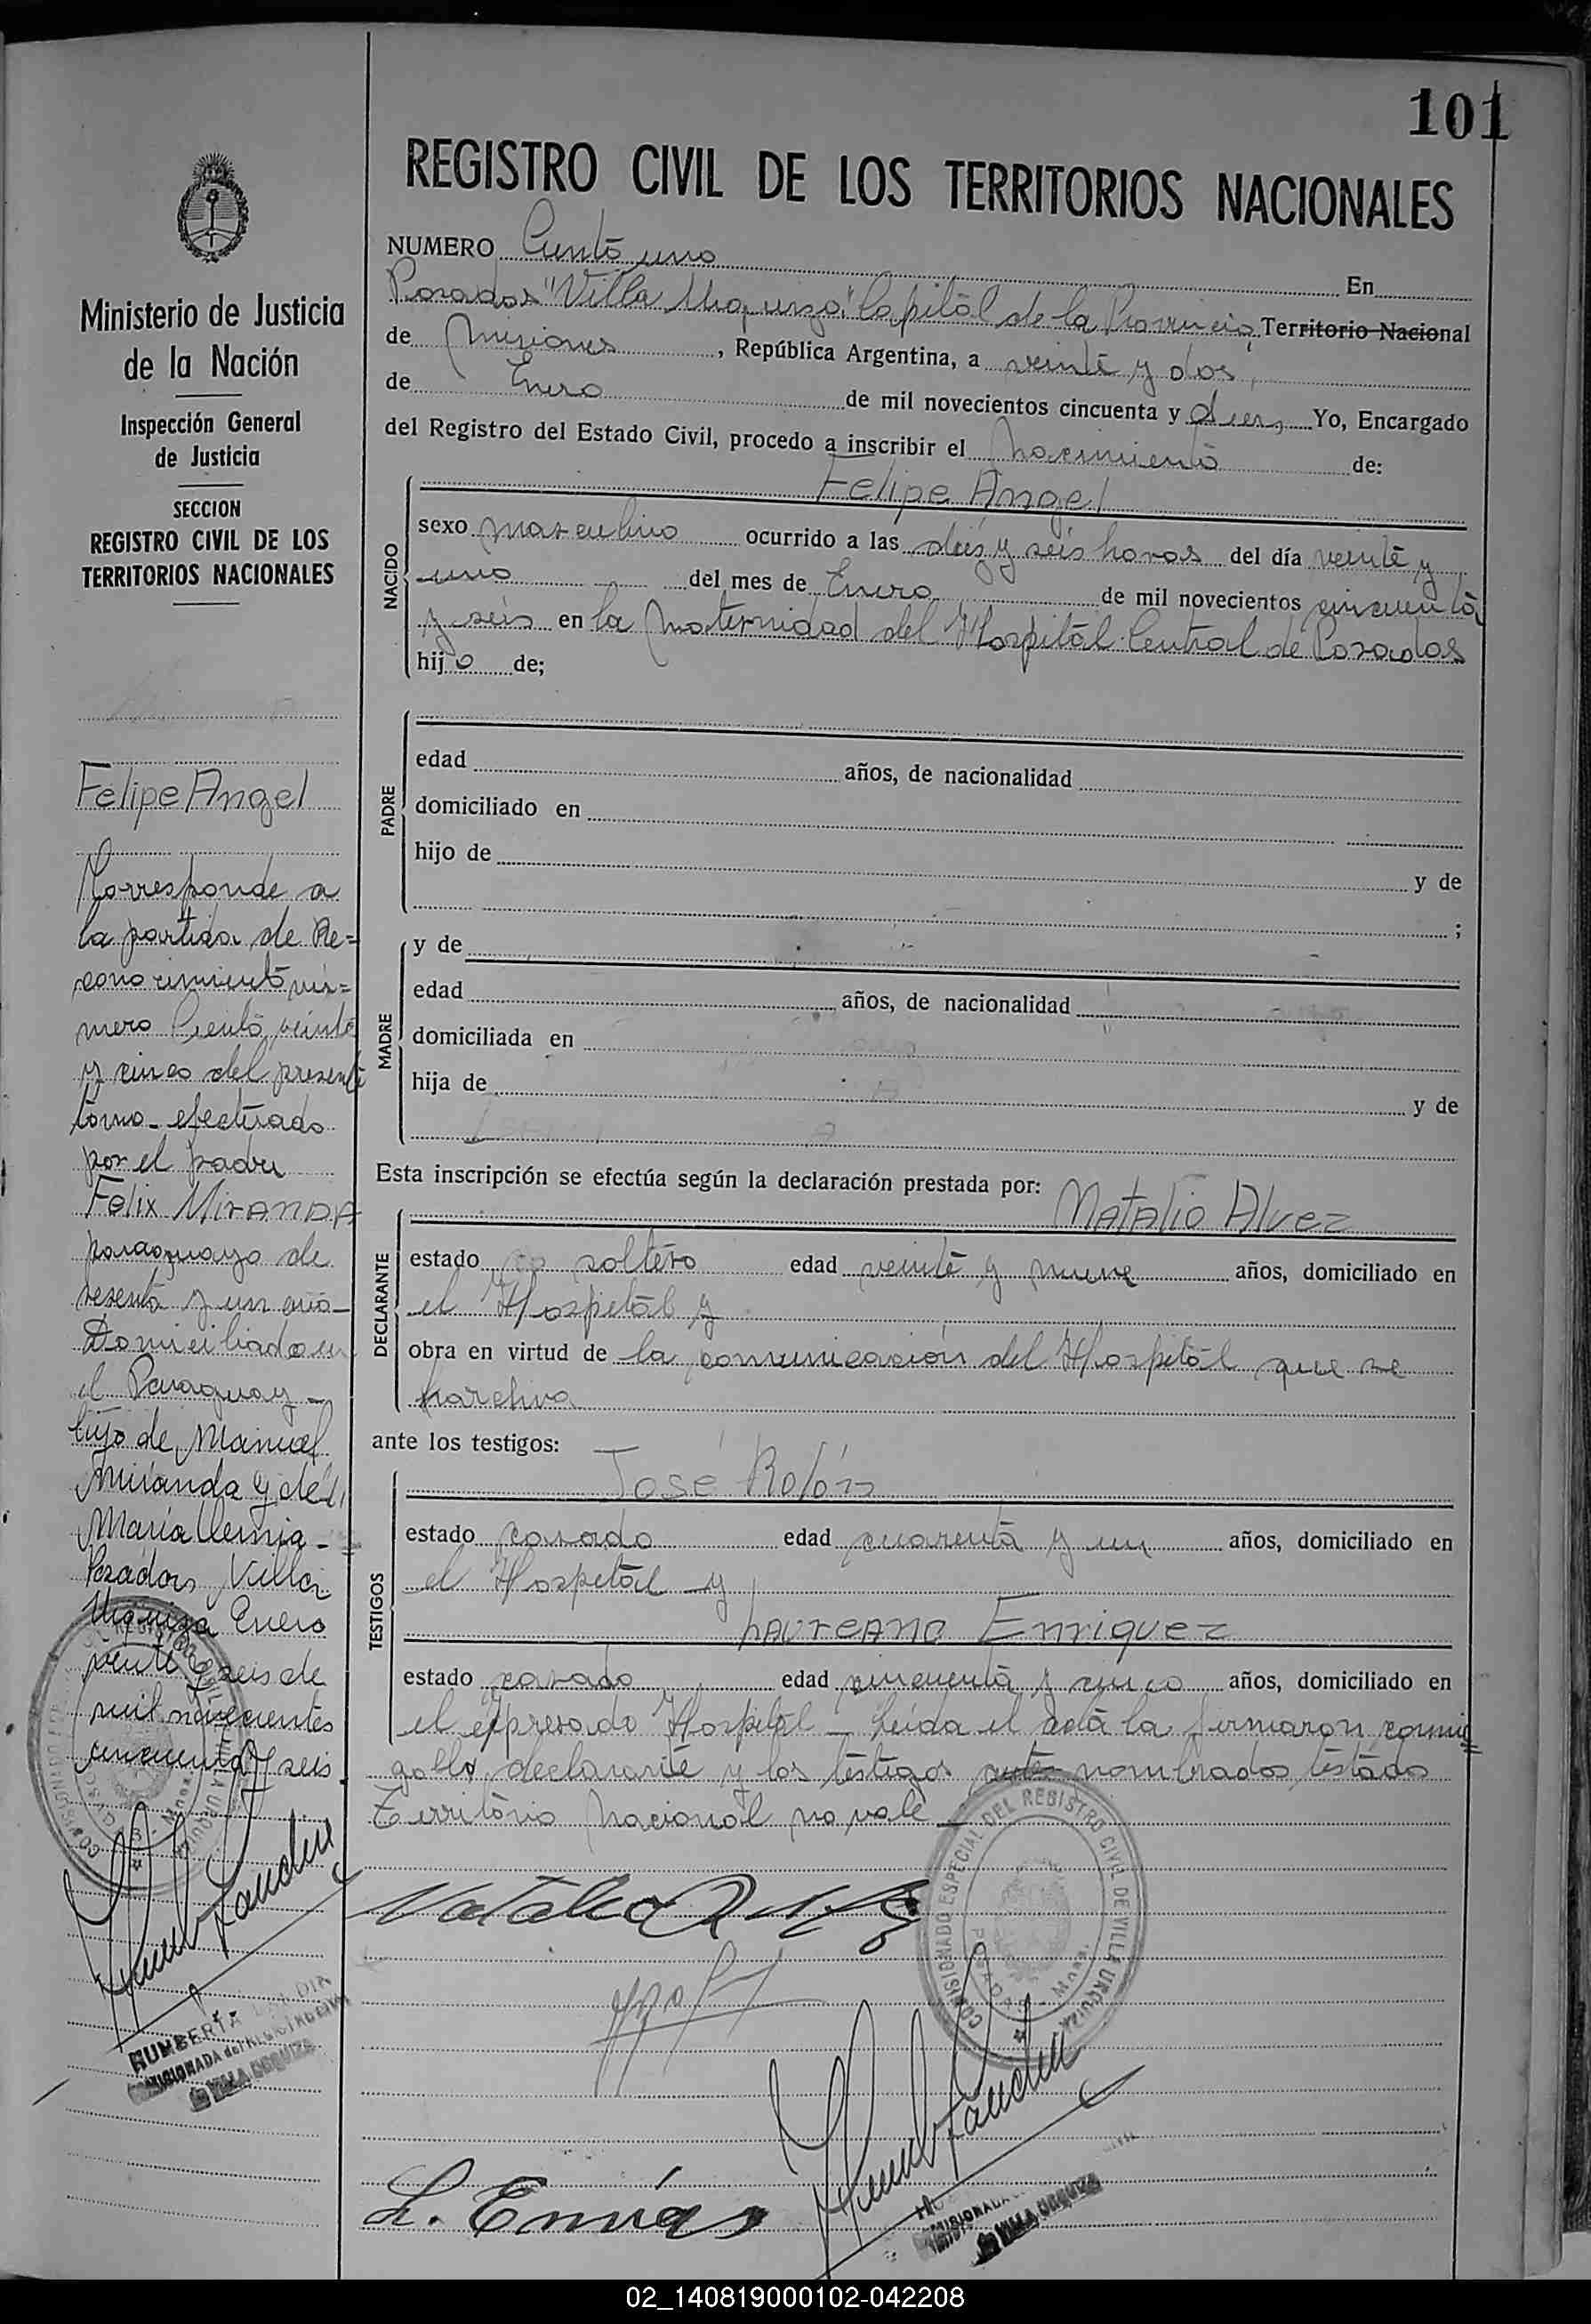 101
REGISTRO CIVIL DE LOS TERRITORIOS NACIONALES
NUMERO Ciento uno
En
Posadas "Villa Urquiza" Capital de la Provincia, Territorio Nacional
de Misiones, República Argentina, a veinte y dos,
de Enero de mil novecientos cincuenta y seis, Yo, Encargado
del Registro del Estado Civil, procedo a inscribir el nacimiento de:
Felipe Angel
NACIDO
sexo masculino ocurrido a las diez y seis horas del día veinte y
uno del mes de Enero de mil novecientos cincuenta
y seis en la Maternidad del Hospital Central de Posadas
hijo de;
PADRE
edad años, de nacionalidad
domiciliado en
hijo de
y de
;
MADRE
y de
edad años, de nacionalidad
domiciliada en
hija de
y de
Esta inscripción se efectúa según la declaración prestada por:
Natalio Alvez
DECLARANTE
estado soltero edad veinte y nueve años, domiciliado en
el Hospital y
obra en virtud de la comunicación del Hospital que se
archiva
ante los testigos:
José Rolón
TESTIGOS
estado casado edad cuarenta y un años, domiciliado en
el Hospital y
Laureano Enriquez
estado casado edad cincuenta y cinco años, domiciliado en
el expresado Hospital – Leida el acta la firmaron conmi=
go el declarante y los testigos antes nombrados, testado
Territorio Nacional no vale –
COMISIONADO ESPECIAL DEL REGISTRO CIVIL DE VILLA URQUIZA
POSADAS - Mnes.
VILLA URQUIZA
Ministerio de Justicia
de la Nación
Inspección General
de Justicia
SECCION
REGISTRO CIVIL DE LOS
TERRITORIOS NACIONALES
Felipe Angel
Corresponde a
la partida de Re=
conocimiento nú=
mero Ciento veinte
y cinco del presente
tomo - efectuado
por el padre
Felix MIRANDA
paraguayo de
sesenta y un año –
Domiciliado en
el Paraguay –
hijo de Manuel
Miranda y de
Maria
Posadas Villa
Urquiza Enero
veinte y seis de
mil novecientos
cincuenta y seis
HUMBERTA
COMISIONADA del REGISTRO CIVIL
de VILLA URQUIZA
02_140819000102-042208